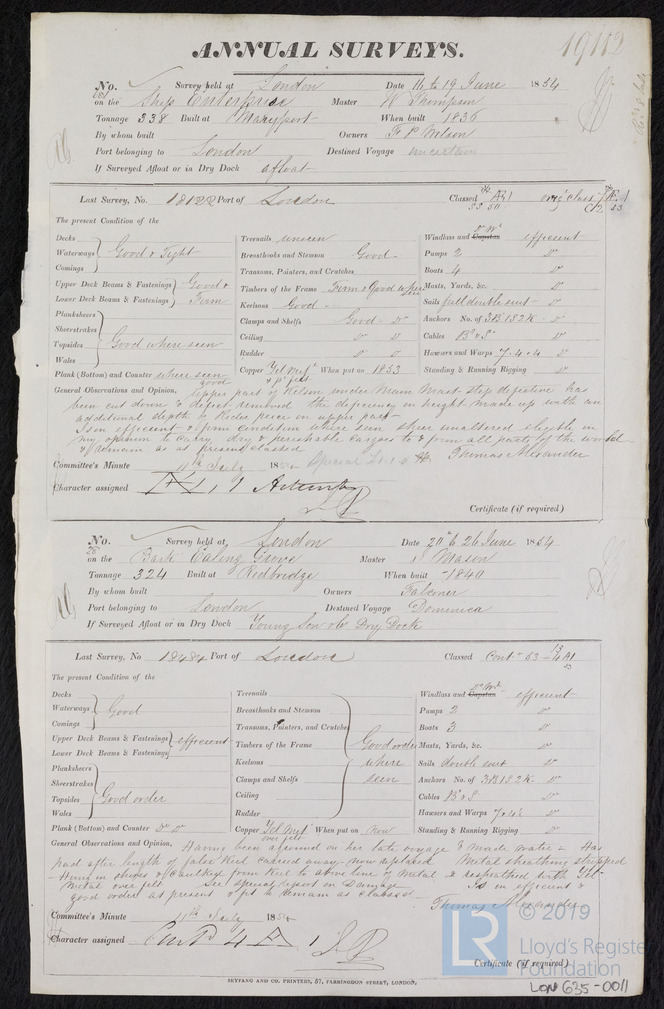 19112
ANNUAL SURVEYS.
No. 681 Survey held at London Date 16 to 19 June 1854
on the Ship Enterprise Master W Thompson
Tonnage 338 Built at Maryport When built 1836
By whom built Owners F P Nelson
Port belonging to London Destined Voyage uncertain
If Surveyed Afloat or in Dry Dock afloat
Last Survey, No. 18122 Port of London Classed Æ 1
The present Condition of the
Decks
Waterways Good & Tight
Comings
Upper Deck Beams & Fastenings Good &
Lower Deck Beams & Fastenings Firm
Planksheers
Sheerstrakes
Topsides Good where seen
Wales
Plank (Bottom) and Counter where seen good
Treenails unseen
Breasthooks and Stemson Good
Transoms, Pointers, and Crutches
Timbers of the Frame Firm & Good where seen
Keelsons Good
Clamps and Shelfs Good Do
Ceiling Do Do
Rudder Do Do
Copper Yel Metl & pt felt When put on 1853
Windlass and Capstan efficient
Pumps 2 Do
Boats 4 Do
Masts, Yards, &c. Do
Sails full double suit Do
Anchors No. of 3B 1S 2K Do
Cables Do
Hawsers and Warps 7.4.4 Do
Standing & Running Rigging Do
General Observations and Opinion, Upper part of Kelson under Main Mast step defective has
been cut down & defect removed the deficiency in height made up with an
additional depth of Rider piece on upper part
Is in efficient & firm condition where seen sheer unaltered eligible in
my opinion to carry dry & perishable cargoes to & from all parts of the world
& remain as at present classed Thomas Alexander
Committee's Minute 11th July 1854
Character assigned Æ 1
Certificate (if required)
No. Survey held at London Date 20 to 26 June 1854
on the Bark Ealing Grove Master Mason
Tonnage 324 Built at Redbridge When built 1840
By whom built Owners Falconer
Port belonging to London Destined Voyage Domenica
If Surveyed Afloat or in Dry Dock Young Son & Co Dry Dock
Last Survey, No. 18484 Port of London Classed Contd 53 - 4 A1
The present Condition of the
Decks
Waterways Good
Comings
Upper Deck Beams & Fastenings efficient
Lower Deck Beams & Fastenings
Planksheers
Sheerstrakes
Topsides Good order
Wales
Plank (Bottom) and Counter Do Do
Treenails
Breasthooks and Stemson
Transoms, Pointers, and Crutches
Timbers of the Frame Good order
Keelsons where
Clamps and Shelfs seen
Ceiling
Rudder
Copper Yel Metl over felt When put on now
Windlass and Capstan efficient
Pumps 2 Do
Boats 3 Do
Masts, Yards, &c. Do
Sails double suit Do
Anchors No. of 3B 1S 2K Do
Cables Do
Hawsers and Warps Do
Standing & Running Rigging Do
General Observations and Opinion, Having been aground on her late voyage & made water - Has
had after length of false Keel carried away - now replaced Metal sheathing stripped
& caulked from Keel to above line of metal & resheathed with Yel
Metal over felt See special report on Damage Is in efficient &
good order as present & fit to remain as classed Thomas Alexander
Committee's Minute 11th July 1854
Character assigned Contd 4 A 1
Certificate (if required)
SEYFANG AND CO. PRINTERS, 57, FARRINGDON STREET, LONDON.
LR
© 2019
Lloyd's Register
Foundation
LON 635-0011